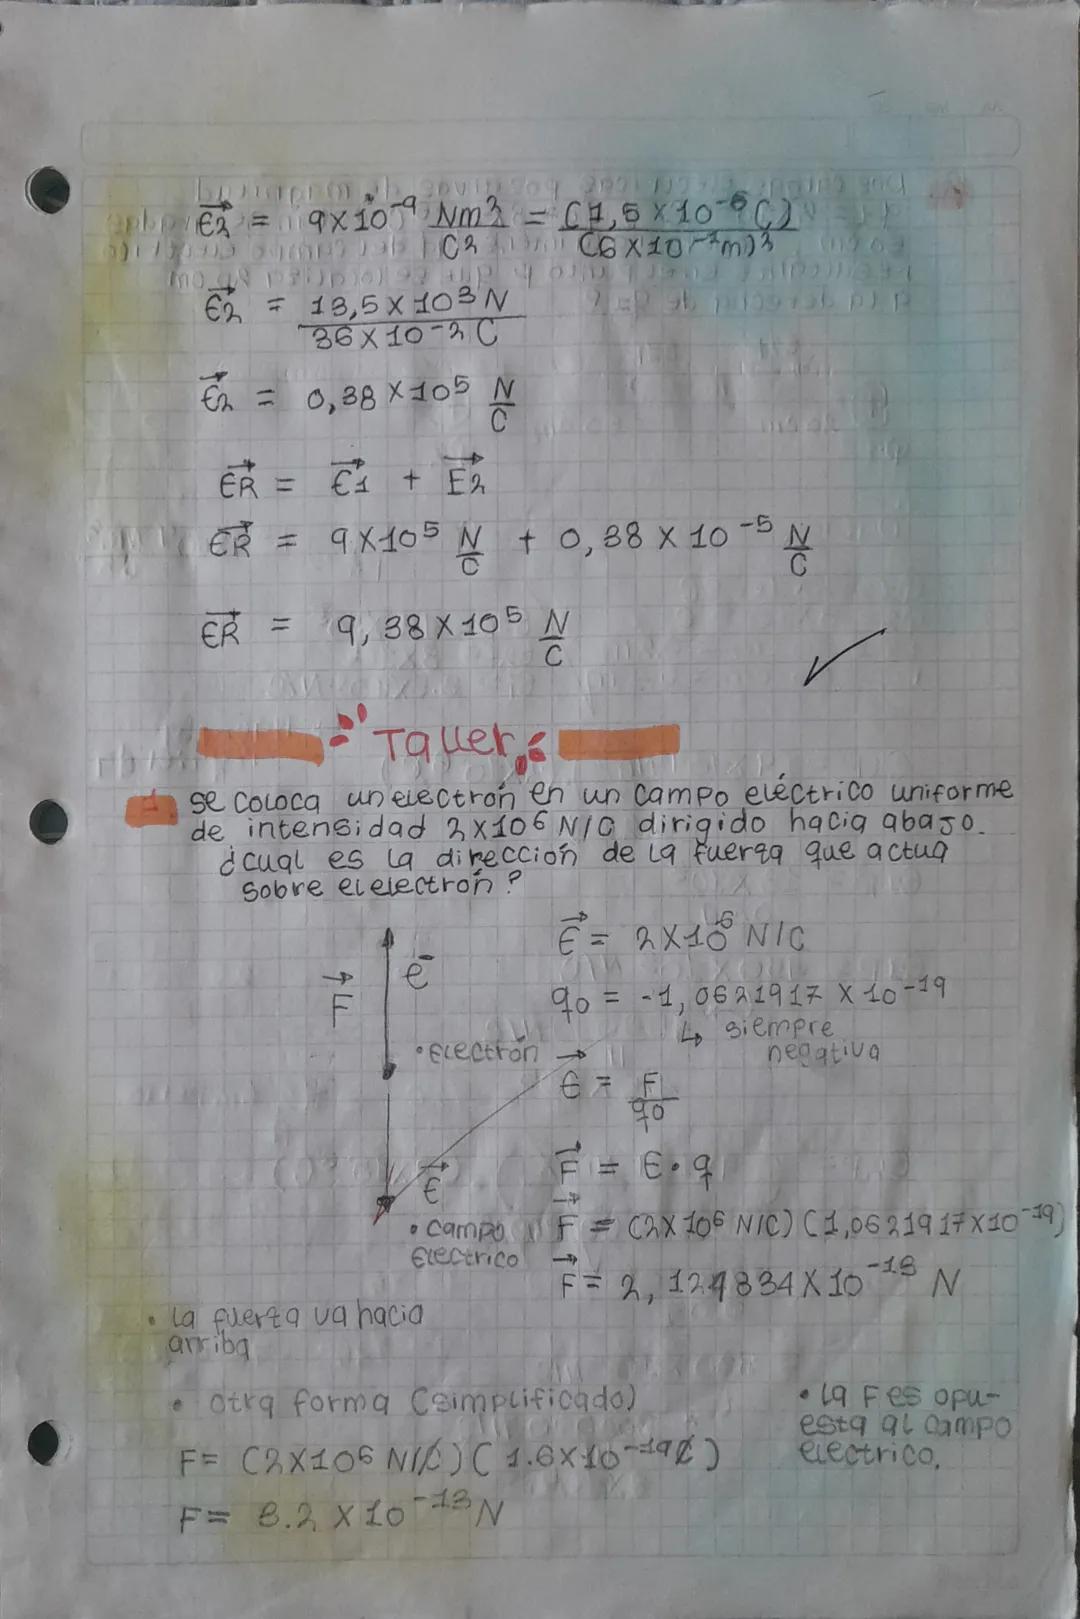 E⃗2 = 9x10⁻⁹ Nm²/C² = (1,5 x 10⁻⁶C)/(6x10⁻¹m)²
E⃗2 = 13,5 x 10³N/36 x 10⁻²C
E⃗2 = 0,38 x 10⁵ N/C
E⃗R = E⃗1 + E⃗2
E⃗R = 9x10⁵ N/C + 0,38 x 10⁻⁵ N/C
E⃗R = 9,38 x 10⁵ N/C
Taller
1. se coloca un electrón en un campo eléctrico uniforme
de intensidad 2x10⁶ N/C dirigido hacia abajo.
¿cual es la dirección de la fuerza que actua
sobre el electrón?
F⃗
e⁻
• electrón
E⃗
• campo
electrico
E⃗ = 2x10⁶ N/C
q0 = -1,0621917 x 10⁻¹⁹
↳ siempre
negativa
E⃗ = F/q0
F⃗ = E • q
F⃗ = (2x10⁶ N/C) (1,0621917x10⁻¹⁹)
F⃗ = 2,124834x10⁻¹³ N
• la fuerza va hacia
arriba
• otra forma (simplificado)
F = (2x10⁶ N/C) (1.6x10⁻¹⁹C)
F = 3.2 x 10⁻¹³N
• la F es opu-
esta al campo
electrico.